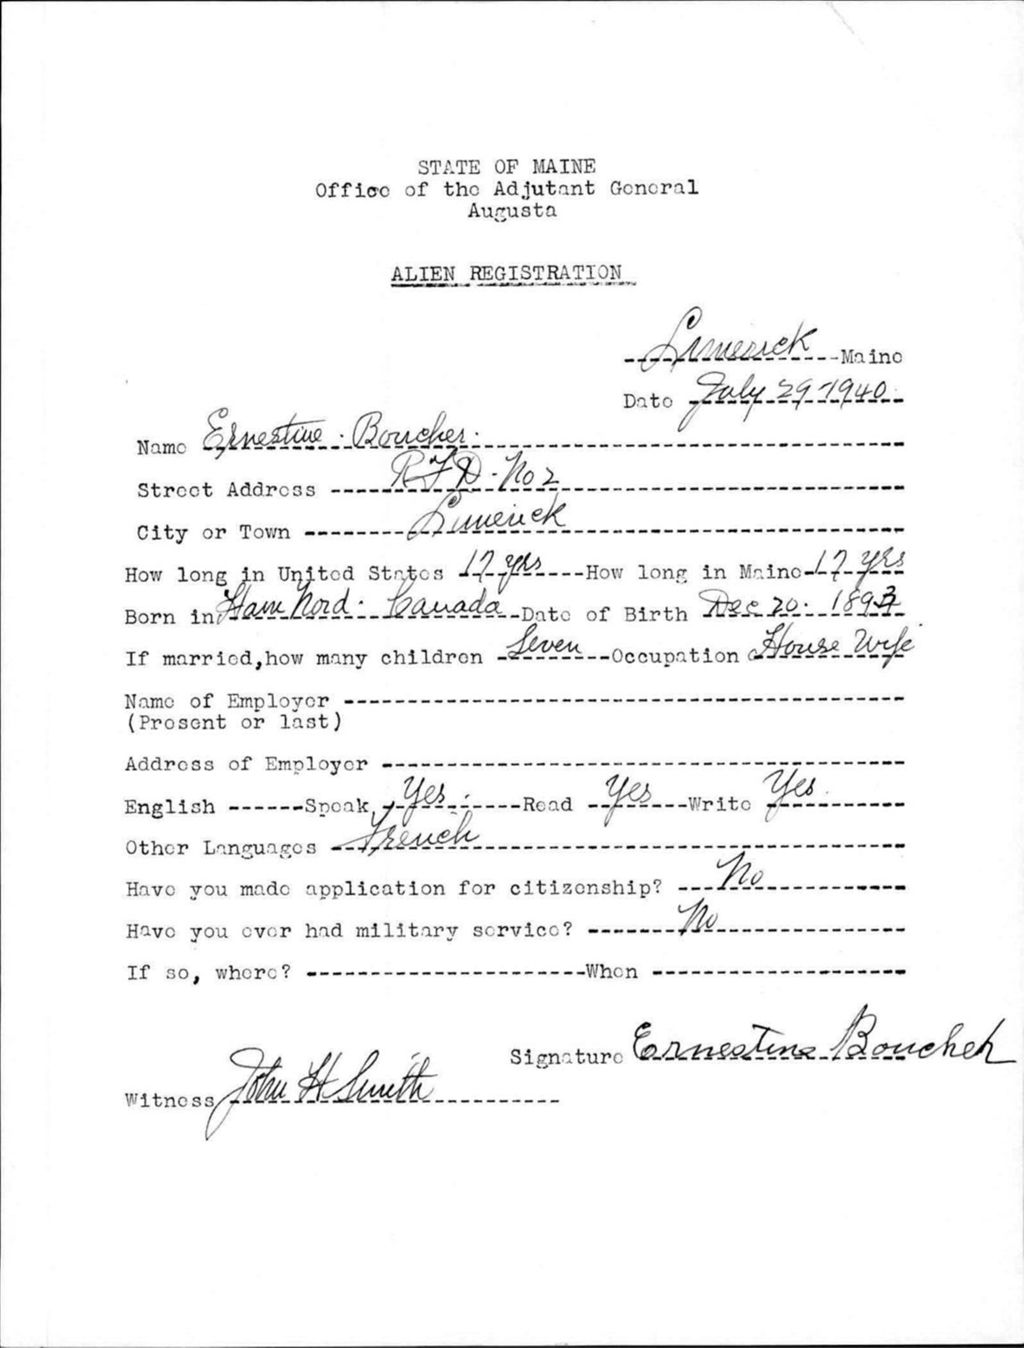 STATE OF MAINE
Office of the Adjutant General
Augusta
ALIEN REGISTRATION
Limerick Maine
Date July 29 1940
Name Ernestine Boucher
Street Address RFD No 2
City or Town Limerick
How long in United States 17 yrs How long in Maine 17 yrs
Born in Ham Nord. Canada Date of Birth Dec 20. 1893
If married, how many children Seven Occupation House Wife
Name of Employer
(Present or last)
Address of Employer
English Speak Yes Read Yes Write Yes
Other Languages French
Have you made application for citizenship? No
Have you ever had military service? No
If so, where? When
Signature Ernestine Boucher
Witness John H Smith